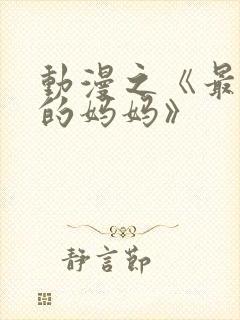 動漫之《最
的妈妈》
靜言節